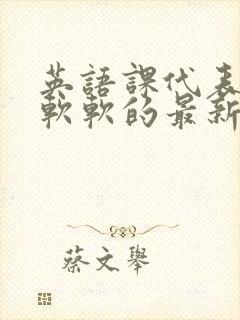 英語課代表
軟軟的最新
蔡文舉